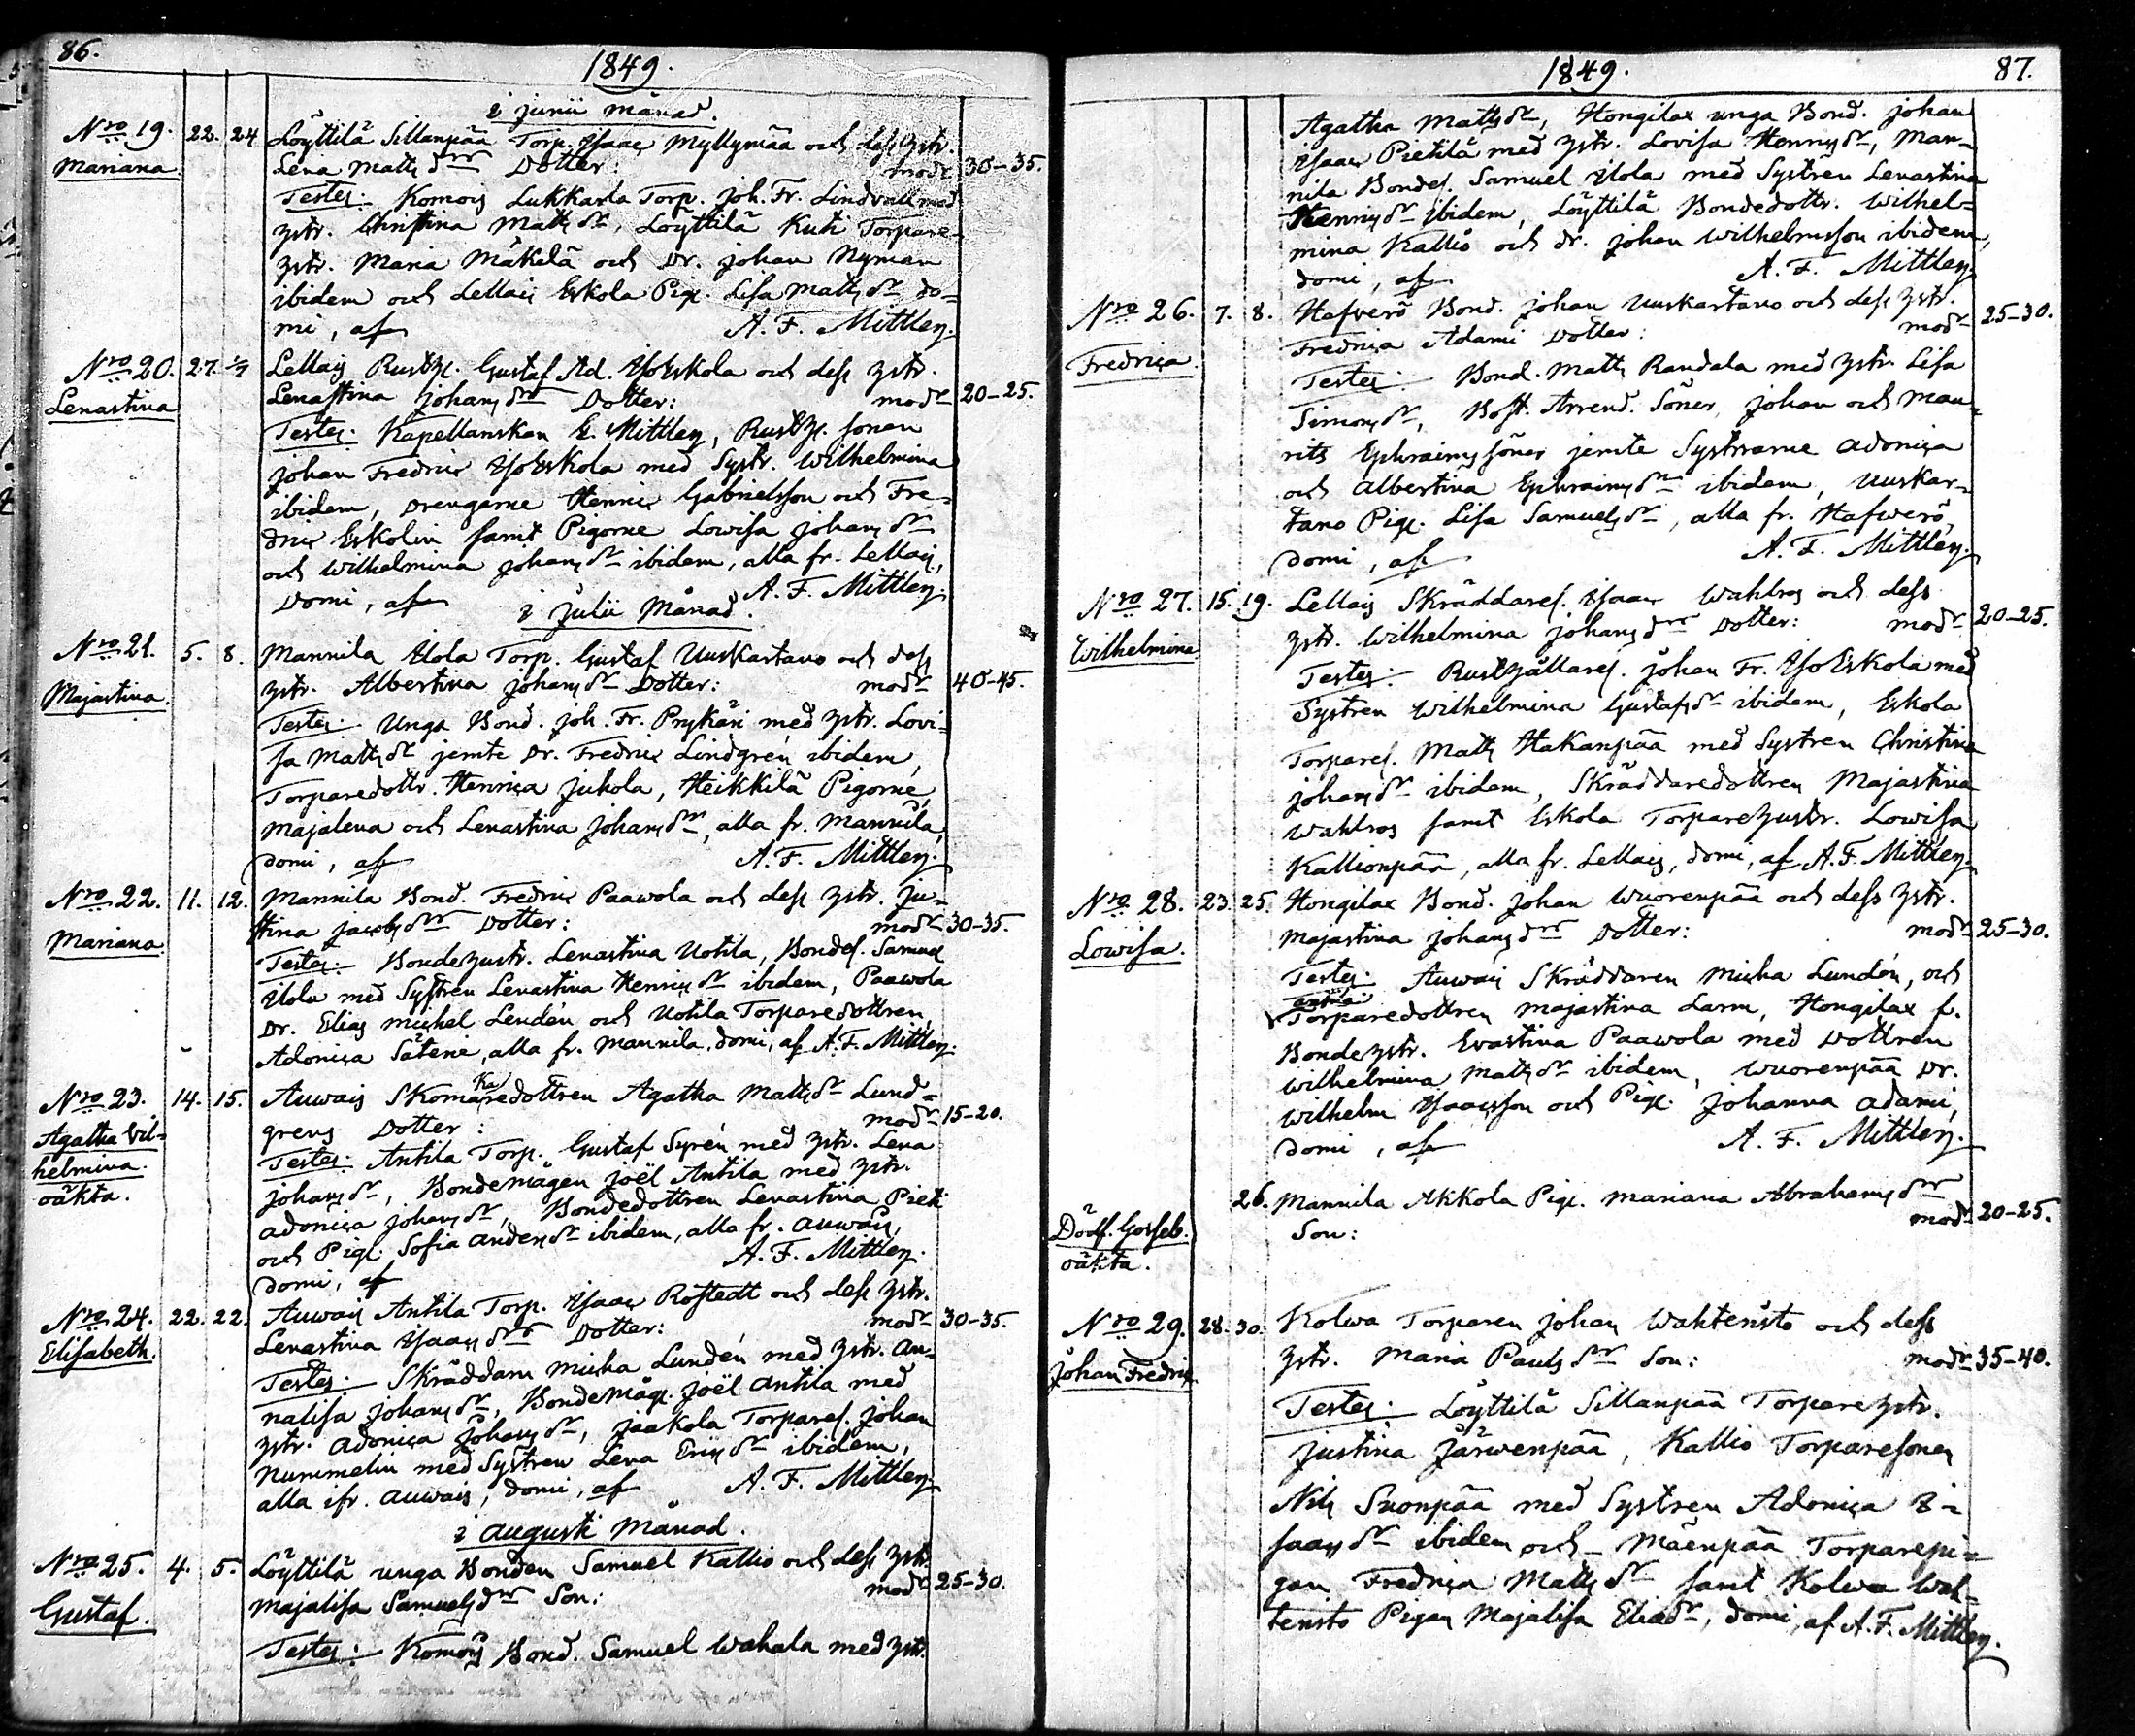 86.
1849.
i junii månad.
Nro 19. 22. 24 Löyttilä Sillanpää Torp. Isaac Myllymää och dess hstr.
Mariana Lena Matts dr Dotter: modr 30-35.
Testes: Komois Lukkarla Torp. Joh. Fr. Lindvall med
hstr. Christina Matts dr, Löyttilä Kuti Torpare-
hstr. Maria Mäkelä och Dr. Johan Nyman
ibidem och Lellais Eskola Pig. Lisa Matts dr, do-
mi, af A. F. Mittler.
Nro 20. 27. 1/7 Lellais Rusth. Gustaf Ad. Iso Eskola och dess hstr.
Lenastina Lenastina Johans dr Dotter: modr 20-25.
Testes: Kapellanskan E. Mittler, Rusth. sonen
Johan Fredric Iso Eskola med Systr. Wilhelmina
ibidem, Drengarne Henric Gabrielsson och Fre-
dric Eskolin samt Pigorne Lowisa Johans dr
och Wilhelmina Johans dr ibidem, alla fr. Lellais,
Domi, af A. F. Mittler.
i Julii Månad.
Nro 21. 5. 8. Mannila Ilola Torp. Gustaf Uuskartano och dess
Majastina. hstr. Albertina Johans dr Dotter: modr 40-45.
Testes: Unga Bond. Joh. Fr. Prykäri med hstr. Lovi-
sa Matts dr jemte Dr. Fredric Lindgrén ibidem,
Torparedottr. Henrica Juhola, Heikkilä Pigorne,
Majalena och Lenastina Johans dr, alla fr. Mannila,
domi, af A. F. Mittler.
Nro 22. 11. 12. Mannila Bond. Fredric Paawola och dess hstr. Ju-
Mariana stina Jacobs dr Dotter: modr 30-35.
Testes: Bondehustr. Lenastina Uotila, Bondes. Samuel
Ilola med Systren Lenastina Henrics dr ibidem, Paawola
Dr. Elias Michel Lendén och Uotila Torparedottren,
Adonica Säteri, alla fr. Mannila, domi, af A. F. Mittler.
Nro 23. 14. 15. Auwais Skomakaredottren Agatha Matts dr Lund-
Agatha Wil- grens Dotter: modr 15-20.
helmina. Testes: Antila Torp. Gustaf Syrén med hstr. Lena
oäkta. Johans dr, Bondemågen Joël Antila med hstr.
Adonica Johans dr, Bondedottren Lenastina Pieti
och Pig. Sofia Anders dr ibidem, alla fr. Auwais,
domi, af A. F. Mittler.
Nro 24. 22. 22. Auwais Antila Torp. Isaac Rostedt och dess hstr.
Elisabeth. Lenastina Isaacs dr Dotter: modr 30-35.
Testes: Skräddarn Micha Lundén med hstr. An-
nalisa Johans dr, Bondemåg. Joël Antila med
hstr. Adonica Johans dr, Jaakola Torpares. Johan
Nummelin med Systren Lena Erics dr ibidem,
alla ifr. Auwais, domi, af A. F. Mittler
i Augusti Månad.
Nro 25. 4. 5. Löyttilä unga Bonden Samuel Kallio och dess hstr.
Gustaf. Majalisa Samuels dr Son: modr 25-30.
Testes: Komois Bond. Samuel Wahala med hstr.
1849. 87.
Agatha Matts dr, Hongilax unga Bond. Johan
Isaac Pietilä med hstr. Lovisa Henrics dr, Man-
nila Bondes. Samuel Ilola med Systren Lenastina
Henrics dr ibidem, Löyttilä Bondedottr. Wilhel-
mina Kallio och dr. Johan Wilhelmsson ibidem,
domi, af A. F. Mittler
Nro 26. 7. 8. Hafverö Bond. Johan Uuskartano och dess hstr.
Fredrica Fredrica Adami Dotter: modr 25-30.
Testes: Bond. Matts Randala med hstr. Lisa
Simons dr, Bost. Arrend. Söner, Johan och Mau-
rits Ephraims söner jemte Systrarne Adonica
och Albertina Ephraims dr ibidem, Uuskar-
tano Pig. Lisa Samuels dr, alla fr. Hafwerö,
domi, af A. F. Mittler.
Nro 27. 15. 19. Lellais Skräddares. Isaac Wahlros och dess
Wilhelmina hstr. Wilhelmina Johans dr Dotter: modr 20-25.
Testes: Rusthållares. Johan Fr. Iso Eskola med
Systren Wilhelmina Gustafs dr ibidem, Eskola
Torpares. Matts Hakanpää med Systren Christina
Johans dr ibidem, Skräddaredottren Majastina
Wahlros samt Eskola Torparehustr. Lowisa
Kallionpää, alla fr. Lellais, domi, af A. F. Mittler.
Nro 28. 23. 25. Hongilax Bond. Johan Wuorenpää och dess hstr.
Lowisa. Majastina Johans dr Dotter: modr 25-30.
Testes: Auwais Skräddaren Micha Lundén, och
Torparedottren Majastina Larm, Hongilax f.
Bondehstr. Evastina Paawola med Dottren
Wilhelmina Matts dr ibidem, Wuorenpää Dr.
Wilhelm Isaacsson och Pig. Johanna Adami,
domi, af A. F. Mittler.
26. Mannila Akkola Pig. Mariana Abrahams dr
Dödf. Gosseb. Son: modr 20-25.
oäkta.
Nro 29. 28. 30. Kolwa Torparen Johan Wahteristo och dess
Johan Fredric hstr. Maria Pauls dr Son: modr 35-40.
Testes: Löyttilä Sillanpää Torparehstr.
Justina Järwenpää, Kallio Torparesonen
Nils Suonpää med Systren Adonica I-
saacs dr ibidem och Mäenpää Torparepi-
gan Fredrica Matts dr samt Kolwa Wah-
teristo Pigan Majalisa Eliædr, domi, af A. F. Mittler.